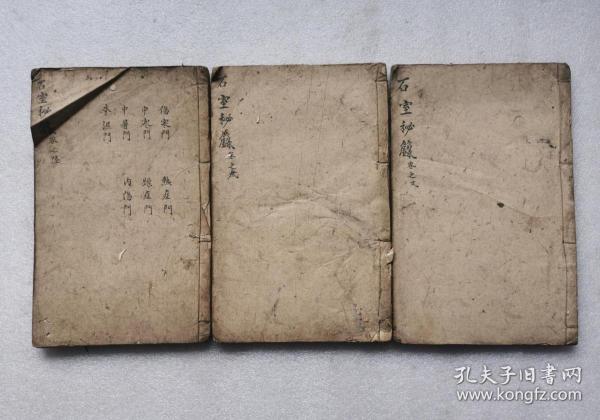 石室秘
卷之陸
傷寒門 熱症門
中寒門 䠂症門
中暑門 内傷門
水濕門
石室秘籙
卷之
石室秘籙
卷之
孔夫子旧书网
www.kongfz.com